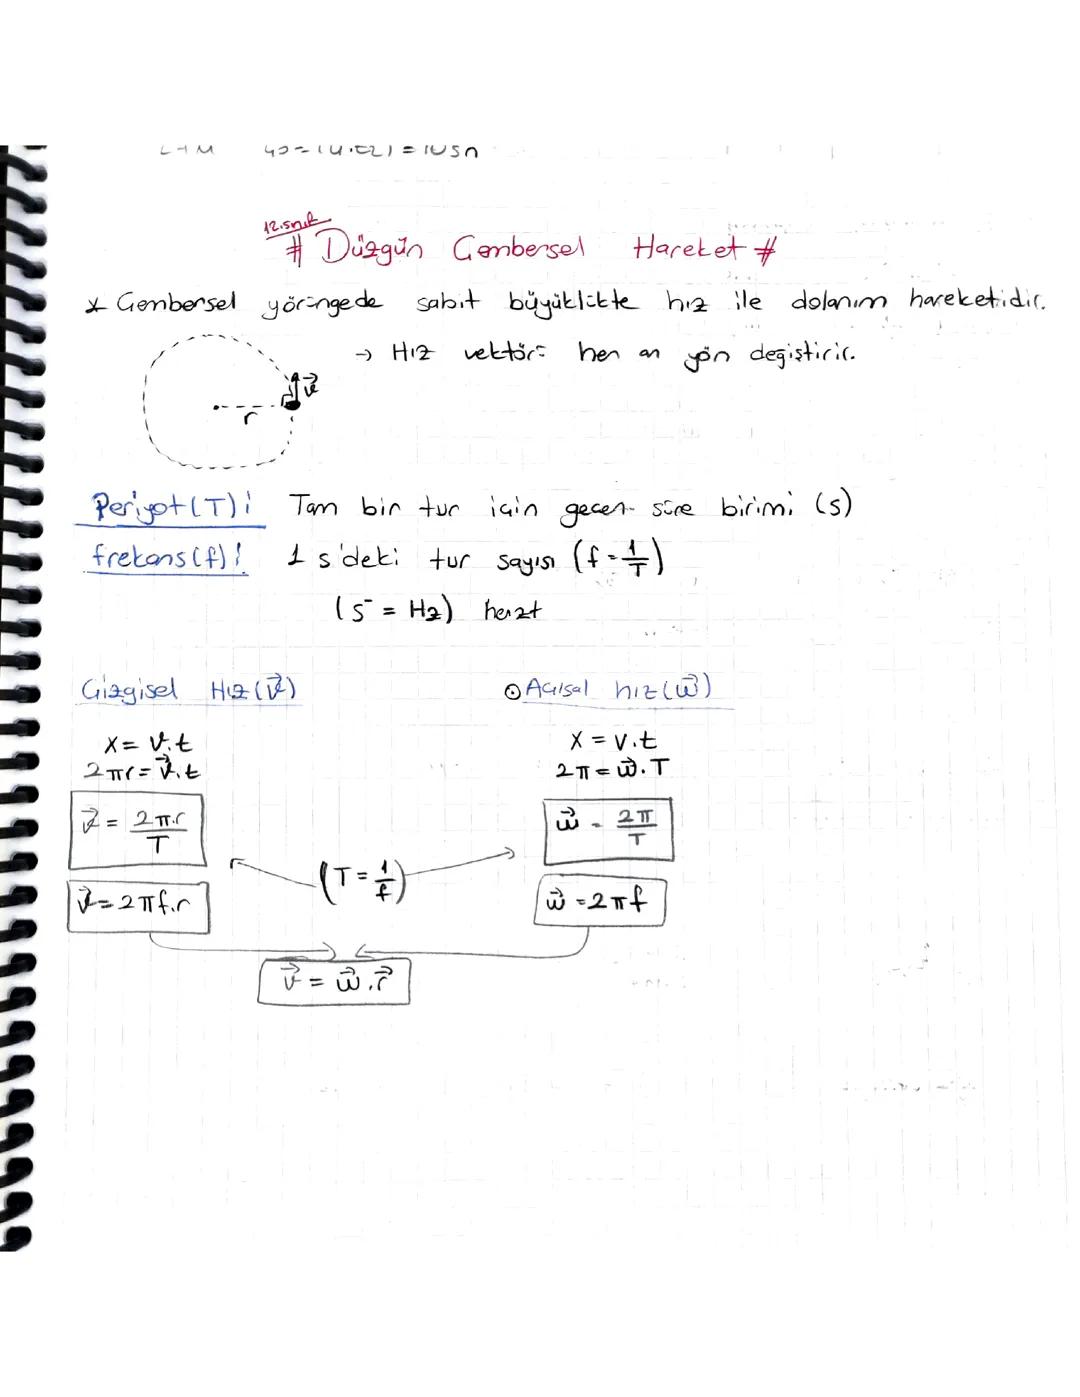 12.sınıf
# Düzgün Çembersel Hareket #
* Çembersel yörüngede sabit büyüklükte hız ile dolanım hareketidir.
→ Hız vektörü her an yön değiştirir.
v
r
Periyot (T): Tam bir tur için geçen süre birimi (s)
frekans (f): 1 s'deki tur sayısı (f = 1/T)
(s⁻ = Hz) hertz
Çizgisel Hız (v⃗)
X = v.t
2πr = v⃗.t
v⃗ = 2π.r/T
v⃗ = 2πf.r
⊙ Açısal hız (w⃗)
X = v.t
2π = w⃗.T
w⃗ = 2π/T
w⃗ = 2πf
(T = 1/f)
v⃗ = w⃗.r⃗